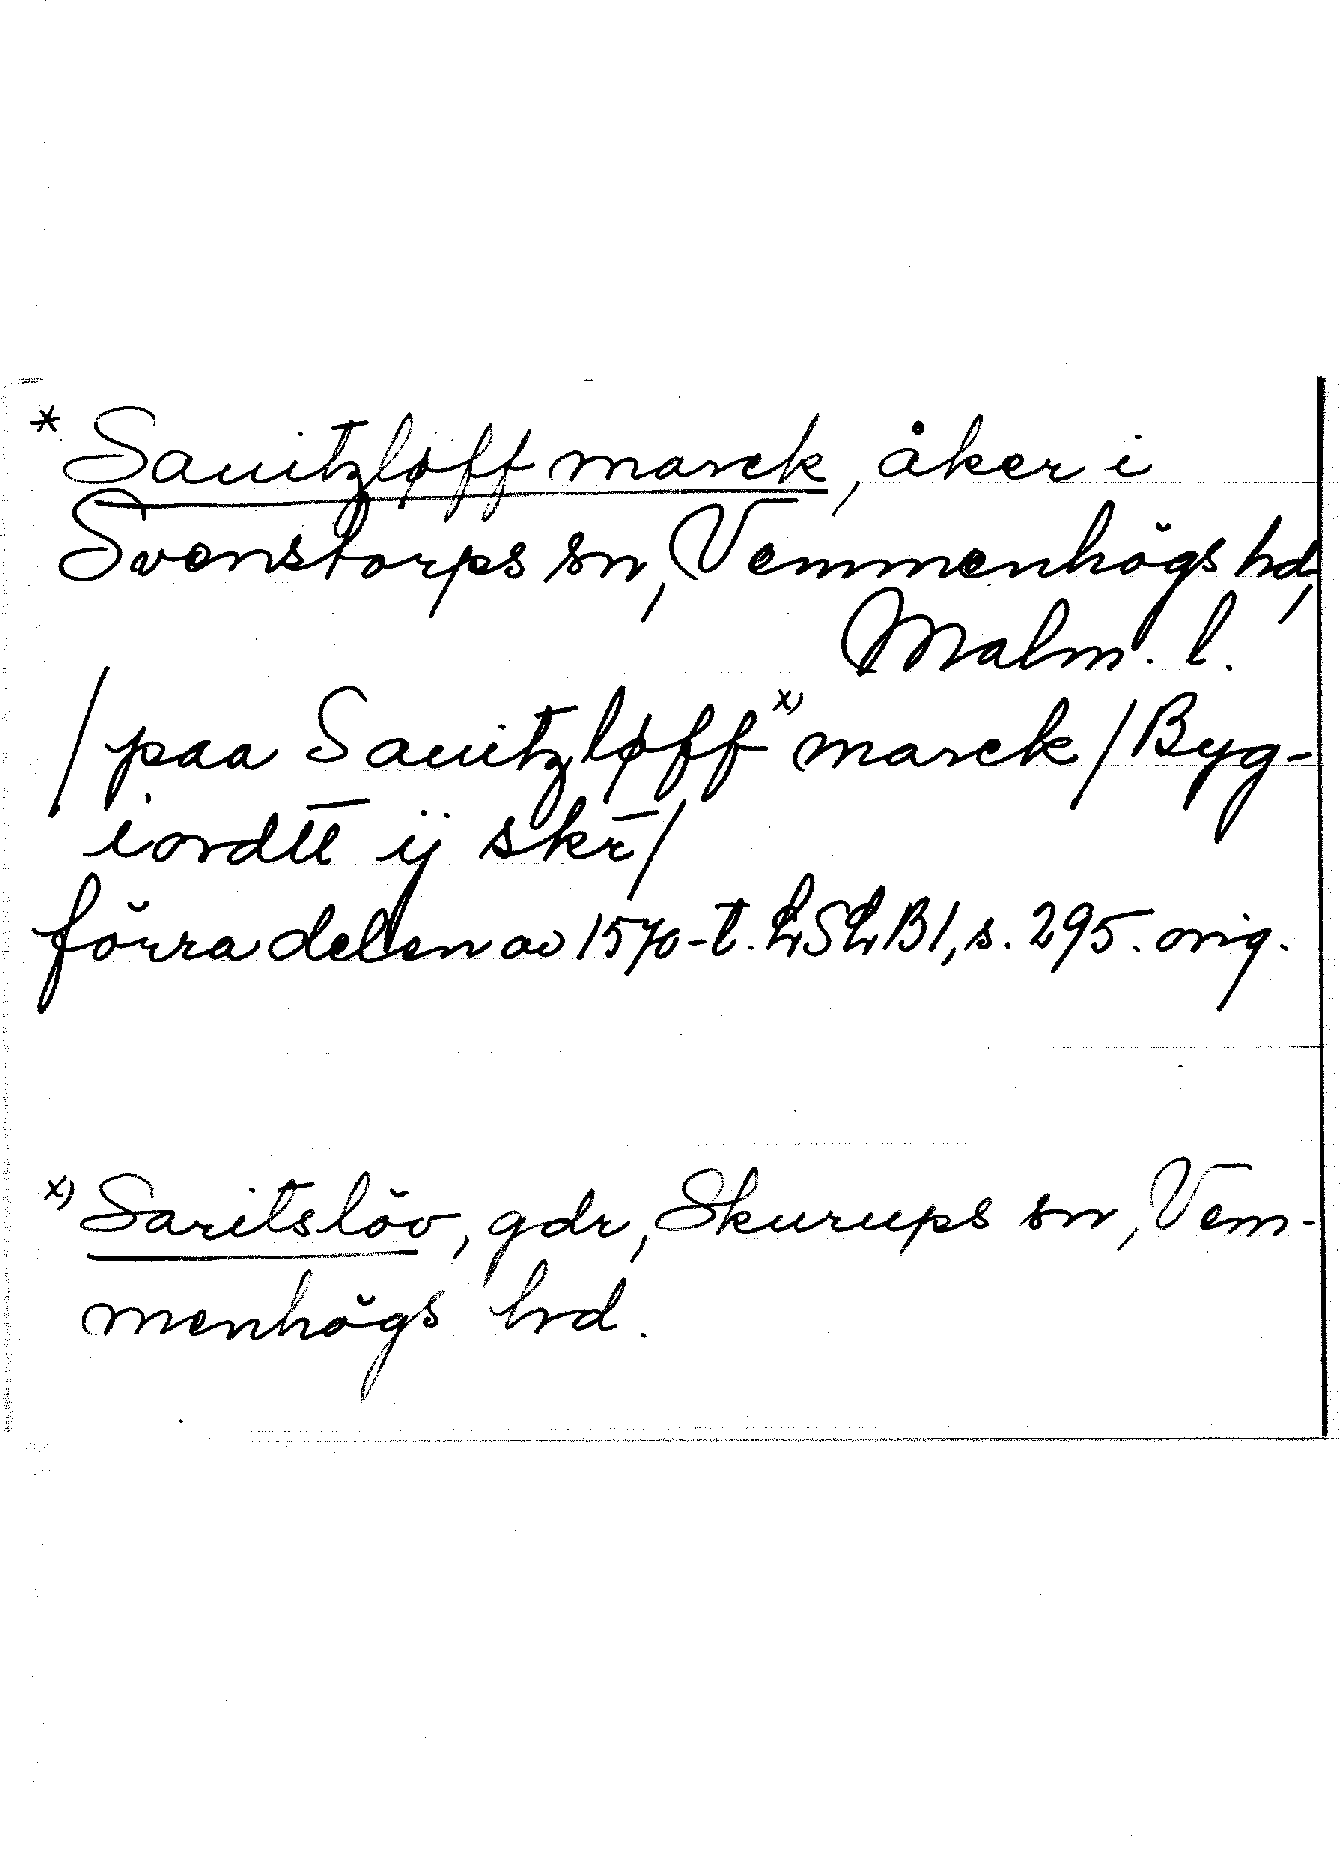 * Sauitzløff marck, åker i
Svenstorps sn, Vemmenhögs hd,
Malm. l.
/paa Sauitzløff x) marck/Byg-
iordtt ij skr̄/
förra delen av 1570-t. LSLB1, s. 295. orig.
x) Saritslöv, gdr, Skurups sn, Vem-
menhögs hd.